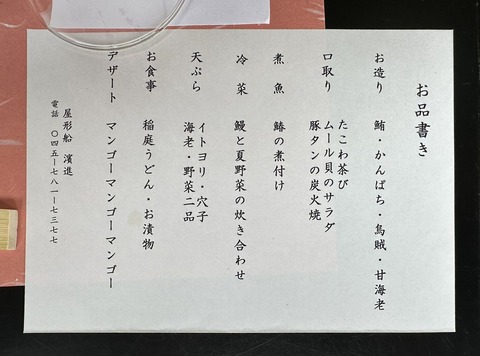 お品書き
お造り　鮪・かんぱち・烏賊・甘海老
口取り　たこわ茶び
ムール貝のサラダ
豚タンの炭火焼
煮魚　鰆の煮付け
冷菜　鰻と夏野菜の炊き合わせ
天ぷら　イトヨリ・穴子
海老・野菜二品
お食事　稲庭うどん・お漬物
デザート　マンゴーマンゴーマンゴー
屋形船　濱進
電話　〇四五―七八一―七三七七